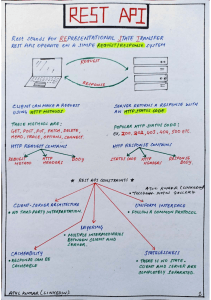 REST API
REST STANDS FOR REPRESENTATIONAL STATE TRANSFER
REST APIs OPERATE ON A SIMPLE REQUEST/RESPONSE SYSTEM
REQUEST
RESPONSE
CLIENT CAN MAKE A REQUEST
USING HTTP METHODS
SERVER RETURNS A RESPONSE WITH
AN HTTP STATUS CODE
THESE METHODS ARE:
GET, POST, PUT, PATCH, DELETE,
HEAD, TRACE, OPTIONS, CONNECT
POPULAR HTTP STATUS CODE:
HTTP REQUEST CONTAINS
REQUEST METHOD
HTTP HEADERS
BODY
HTTP RESPONSE CONTAINS
STATUS CODE
HTTP HEADERS
RESPONSE BODY
REST API CONSTRAINTS
ATUL KUMAR (LINKEDIN)
CLIENT-SERVER ARCHITECTURE
NO THIRD PARTY INTERPRETATION
UNIFORM INTERFACE
FOLLOW A COMMON PROTOCOL
LAYERING
MULTIPLE INTERMEDIARIES
BETWEEN CLIENT AND
SERVER
CACHEABILITY
RESPONSE CAN BE
CACHEABLE
STATELESSNESS
THERE IS NO STATE
CLIENT AND SERVER ARE
COMPLETELY SEPARATED
ATUL KUMAR (LINKEDIN)